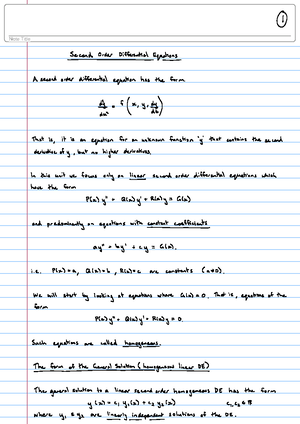 1
Second Order Differential Equations
A second order differential equation has the form
d²y/dx² = f(x, y, dy/dx)
That is, it is an equation for an unknown function 'y' that contains the second
derivative of y, but no higher derivatives.
In this unit we focus only on linear second order differential equations which
have the form
P(x)y'' + Q(x)y' + R(x)y = G(x)
and predominantly on equations with constant coefficients
ay'' + by' + cy = G(x).
i.e. P(x) = a, Q(x) = b, R(x) = c are constants (a≠0).
We will start by looking at equations where G(x) = 0. That is, equations of the
form
P(x)y'' + Q(x)y' + R(x)y = 0.
Such equations are called homogeneous.
The form of the General Solution (homogeneous linear DE)
The general solution to a linear second order homogeneous DE has the form
y(x) = c₁ y₁(x) + c₂ y₂(x) c₁, c₂ ∈ ℝ
where y₁ & y₂ are linearly independent solutions of the DE.